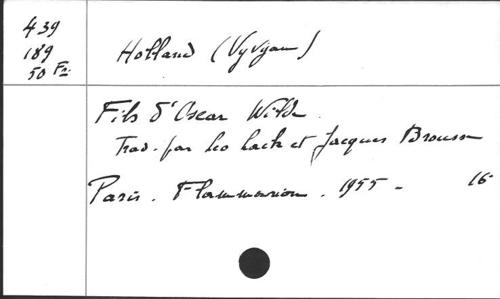 439
189
50 Fr.
Holland (Vyvyan)
Fils d'Oscar Wilde
Trad. par Léo Lack et Jacques Brousse
Paris. Flammarion. 1955 - 16